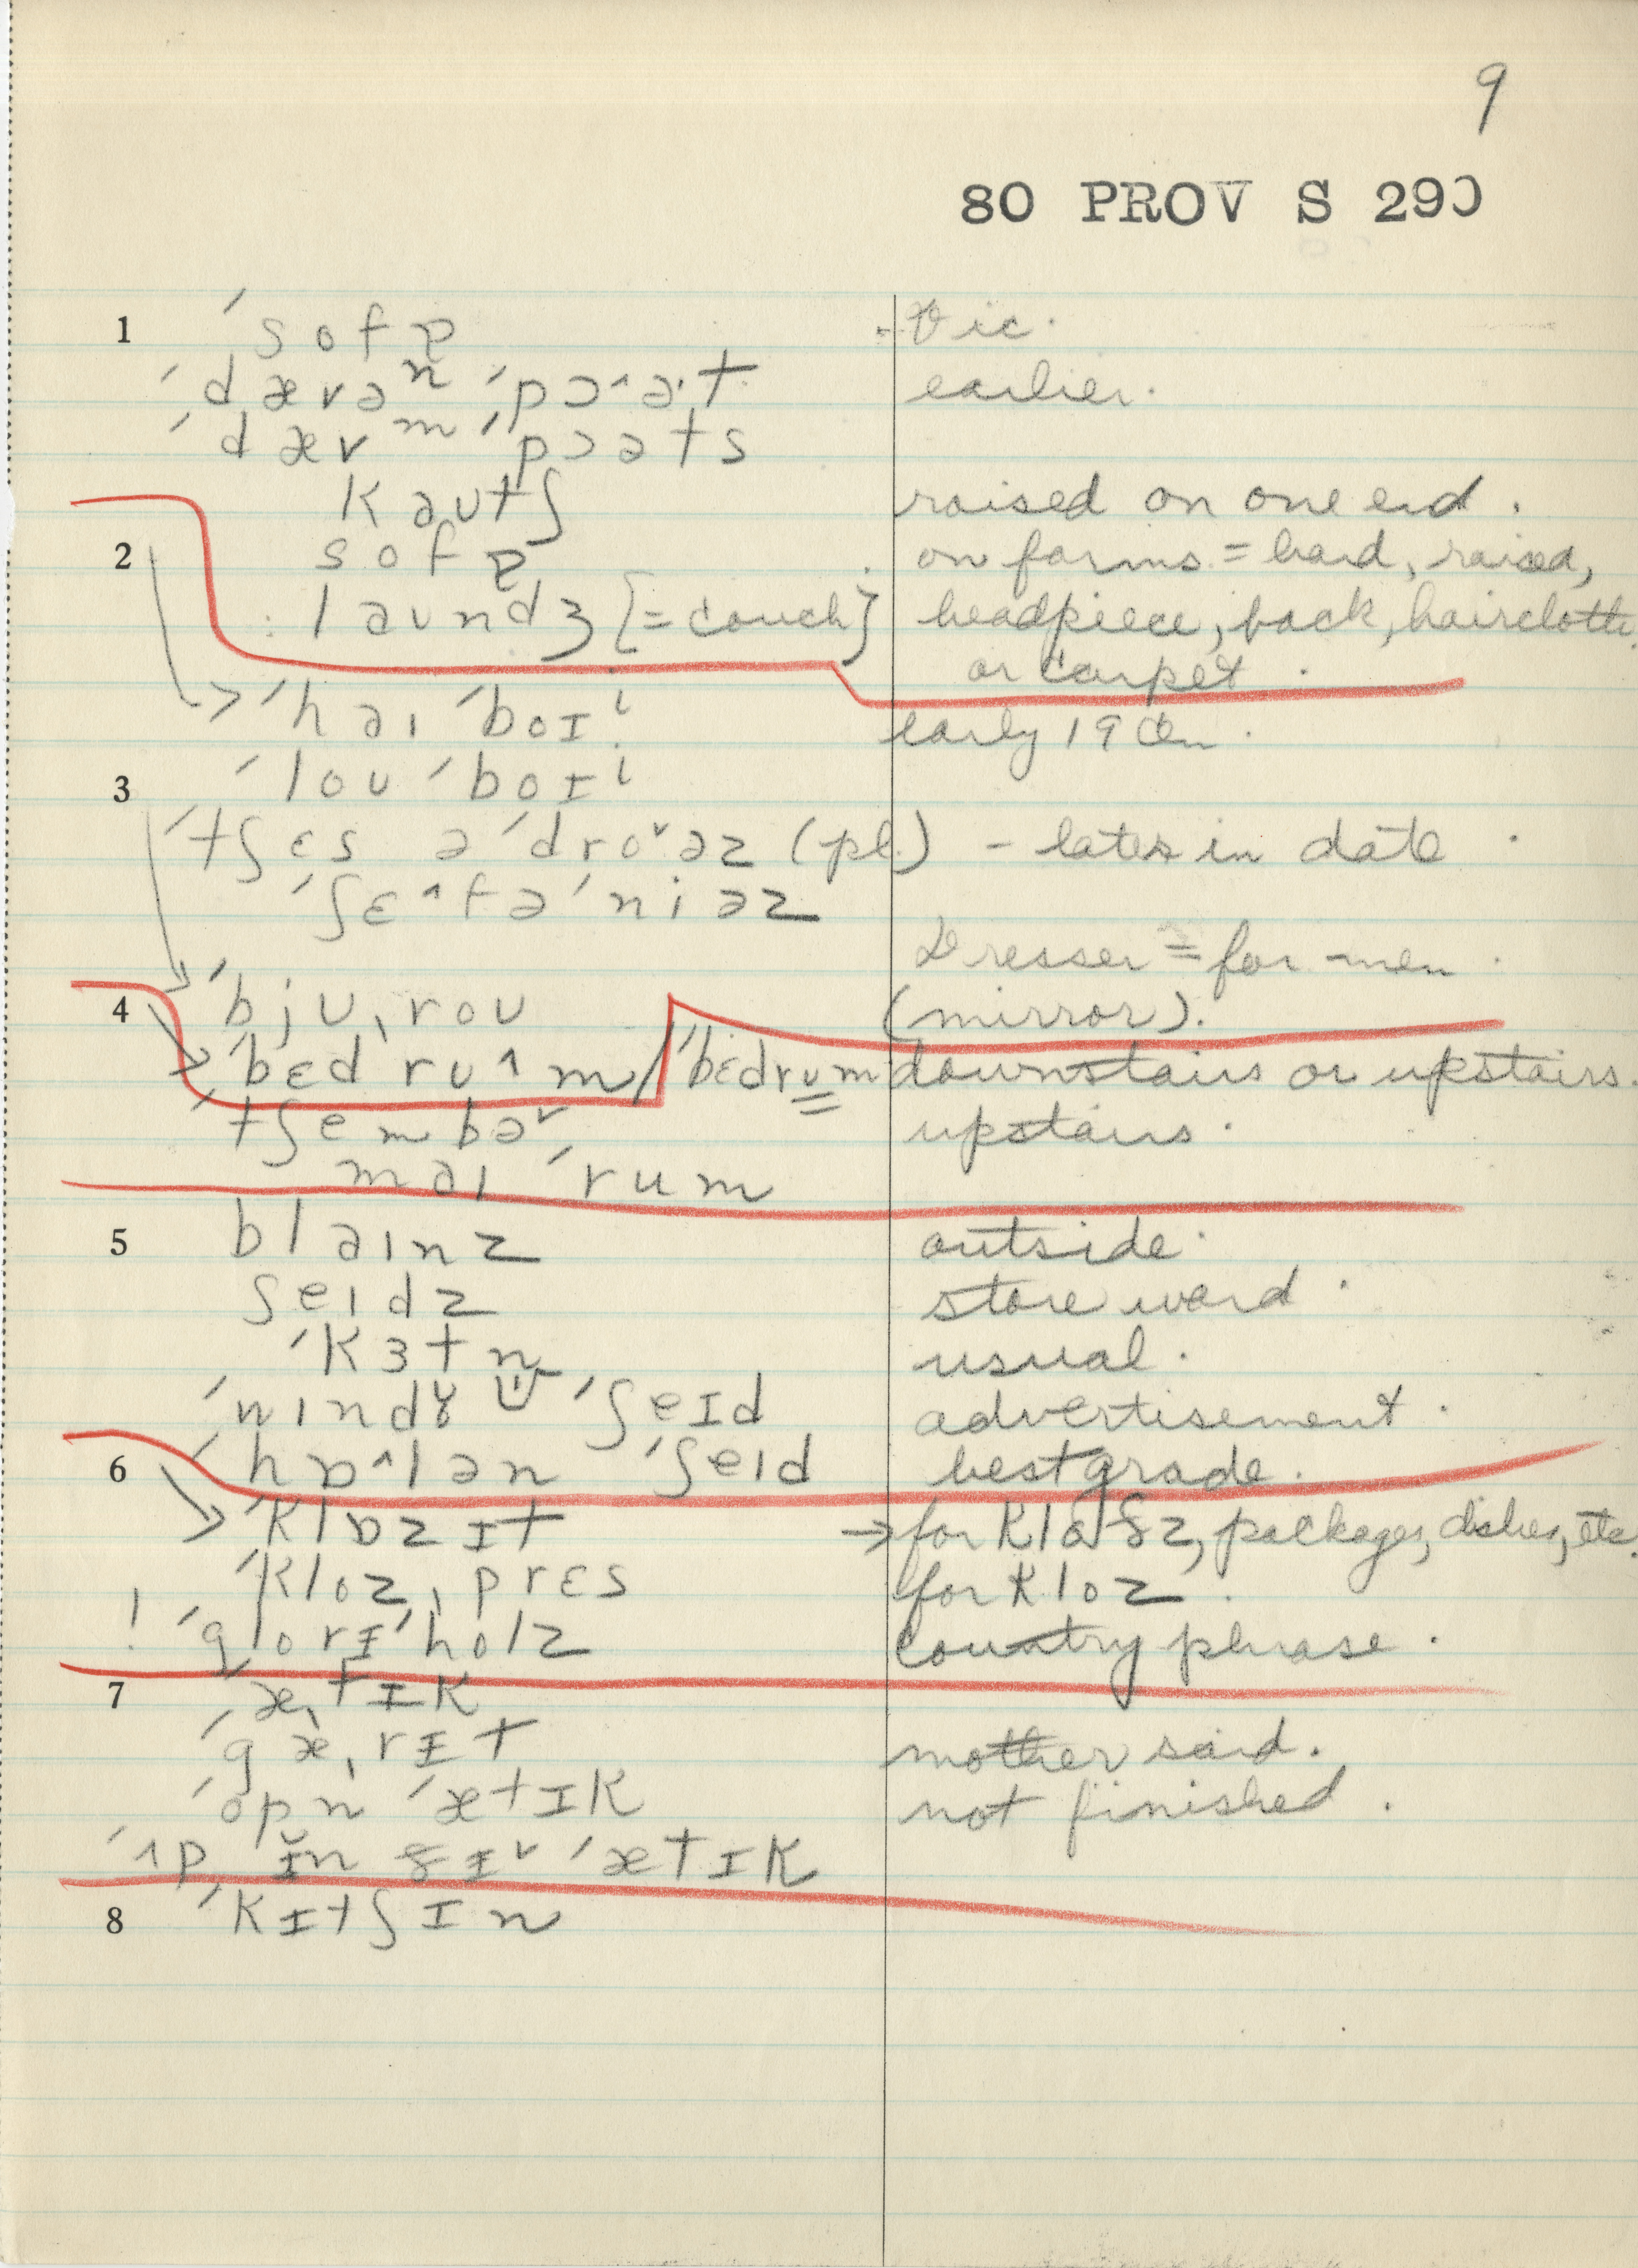 9
80 PROV S 290
1 ˈsofɒ - Vic.
ˈdævəⁿ ˈpɔ^ə·t earlier.
ˈdævᵐ ˈpɔəts
kəutʃ raised on one end.
2 sofɒ on farms = hard, raised,
laundʒ [= couch] headpiece, back, haircloth
or carpet.
ˈhaɪ ˈbɔɪⁱ early 19 Cen.
3 ˈlou ˈbɔɪⁱ
ˈtʃɛs ə ˈdroˇəz (pl.) - later in date.
ˈʃɛ^fəˈniəz
Dresser = for men.
4 ˈbjuˌrou (mirror).
ˈbɛd ru^m / ˈbɛdrum downstairs or upstairs.
ˈtʃembəˇ upstairs.
maɪ ˈrum
5 blaɪnz outside.
ʃeɪdz store word.
ˈkɜtn usual.
ˈwɪndɤ ˈʃeɪd advertisement.
6 ˈhɒ^lən ˈʃeɪd best grade.
ˈklɒzɪt → for klɑðz, packages, dishes, etc.
ˈklozˌprɛs for kloz.
! ˈglorɪˈholz country phrase.
7 ˈæˌtɪk
ˈgæˌrɪt mother said.
ˈopn ˈætɪk not finished.
ˈʌp ɪ̆n ðɪˇ ˈætɪk
8 ˈkɪtʃɪn